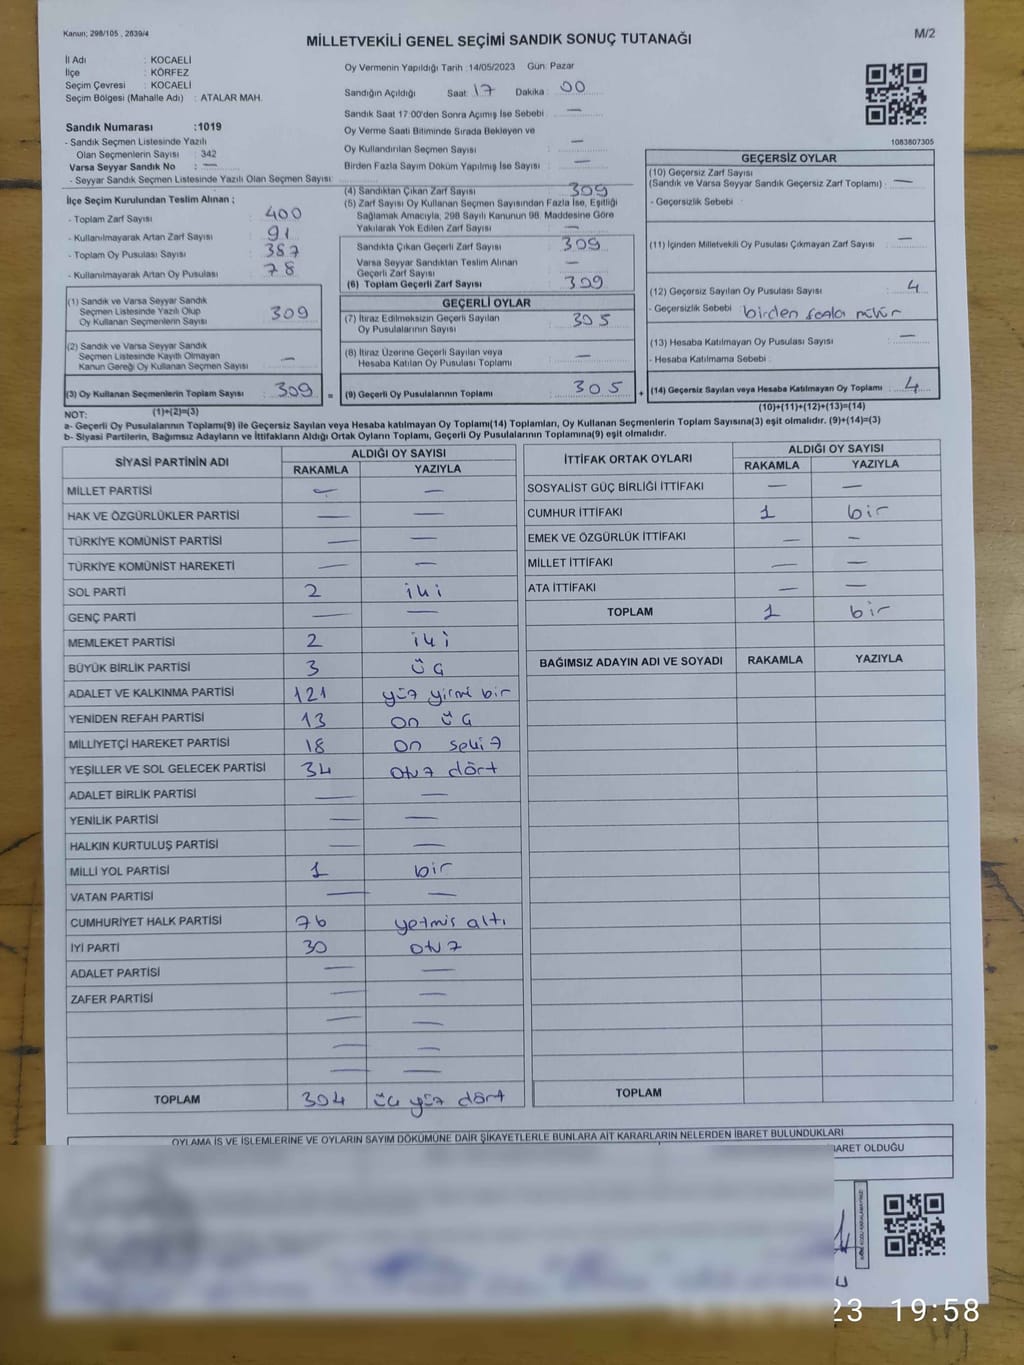 Kanun; 298/105 , 2839/4
MİLLETVEKİLİ GENEL SEÇİMİ SANDIK SONUÇ TUTANAĞI
M/2
İl Adı : KOCAELİ
İlçe : KÖRFEZ
Seçim Çevresi : KOCAELİ
Seçim Bölgesi (Mahalle Adı) : ATALAR MAH.
Sandık Numarası :1019
- Sandık Seçmen Listesinde Yazılı
Olan Seçmenlerin Sayısı : 342
Varsa Seyyar Sandık No : —
- Seyyar Sandık Seçmen Listesinde Yazılı Olan Seçmen Sayısı:
İlçe Seçim Kurulundan Teslim Alınan ;
- Toplam Zarf Sayısı 400
- Kullanılmayarak Artan Zarf Sayısı 91
- Toplam Oy Pusulası Sayısı 387
- Kullanılmayarak Artan Oy Pusulası 78
(1) Sandık ve Varsa Seyyar Sandık
Seçmen Listesinde Yazılı Olup
Oy Kullanan Seçmenlerin Sayısı 309
(2) Sandık ve Varsa Seyyar Sandık
Seçmen Listesinde Kayıtlı Olmayan
Kanun Gereği Oy Kullanan Seçmen Sayısı —
(3) Oy Kullanan Seçmenlerin Toplam Sayısı 309 =
(1)+(2)=(3)
Oy Vermenin Yapıldığı Tarih :14/05/2023 Gün: Pazar
Sandığın Açıldığı Saat: 17 Dakika : 00
Sandık Saat 17:00'den Sonra Açımış İse Sebebi : —
Oy Verme Saati Bitiminde Sırada Bekleyen ve
Oy Kullandırılan Seçmen Sayısı : —
Birden Fazla Sayım Döküm Yapılmış İse Sayısı : —
(4) Sandıktan Çıkan Zarf Sayısı : 309
(5) Zarf Sayısı Oy Kullanan Seçmen Sayısından Fazla İse, Eşitliği
Sağlamak Amacıyla, 298 Sayılı Kanunun 98. Maddesine Göre
Yakılarak Yok Edilen Zarf Sayısı : —
Sandıkta Çıkan Geçerli Zarf Sayısı : 309
Varsa Seyyar Sandıktan Teslim Alınan
Geçerli Zarf Sayısı : —
(6) Toplam Geçerli Zarf Sayısı : 309
GEÇERLİ OYLAR
(7) İtiraz Edilmeksizin Geçerli Sayılan
Oy Pusulalarının Sayısı 305
(8) İtiraz Üzerine Geçerli Sayılan veya
Hesaba Katılan Oy Pusulası Toplamı : —
(9) Geçerli Oy Pusulalarının Toplamı : 305 +
1083807305
GEÇERSİZ OYLAR
(10) Geçersiz Zarf Sayısı
(Sandık ve Varsa Seyyar Sandık Geçersiz Zarf Toplamı) : —
- Geçersizlik Sebebi :
(11) İçinden Milletvekili Oy Pusulası Çıkmayan Zarf Sayısı : —
(12) Geçersiz Sayılan Oy Pusulası Sayısı : 4
- Geçersizlik Sebebi : birden fazla mühür
(13) Hesaba Katılmayan Oy Pusulası Sayısı : —
- Hesaba Katılmama Sebebi :
(14) Geçersiz Sayılan veya Hesaba Katılmayan Oy Toplamı : 4
(10)+(11)+(12)+(13)=(14)
NOT:
a- Geçerli Oy Pusulalarının Toplamı(9) ile Geçersiz Sayılan veya Hesaba katılmayan Oy Toplamı(14) Toplamları, Oy Kullanan Seçmenlerin Toplam Sayısına(3) eşit olmalıdır. (9)+(14)=(3)
b- Siyasi Partilerin, Bağımsız Adayların ve İttifakların Aldığı Ortak Oyların Toplamı, Geçerli Oy Pusulalarının Toplamına(9) eşit olmalıdır.
SİYASİ PARTİNİN ADI ALDIĞI OY SAYISI
RAKAMLA YAZIYLA
MİLLET PARTİSİ — —
HAK VE ÖZGÜRLÜKLER PARTİSİ — —
TÜRKİYE KOMÜNİST PARTİSİ — —
TÜRKİYE KOMÜNİST HAREKETİ — —
SOL PARTİ 2 iki
GENÇ PARTİ — —
MEMLEKET PARTİSİ 2 iki
BÜYÜK BİRLİK PARTİSİ 3 üç
ADALET VE KALKINMA PARTİSİ 121 yüz yirmi bir
YENİDEN REFAH PARTİSİ 13 on üç
MİLLİYETÇİ HAREKET PARTİSİ 18 on sekiz
YEŞİLLER VE SOL GELECEK PARTİSİ 34 otuz dört
ADALET BİRLİK PARTİSİ — —
YENİLİK PARTİSİ — —
HALKIN KURTULUŞ PARTİSİ — —
MİLLİ YOL PARTİSİ 1 bir
VATAN PARTİSİ — —
CUMHURİYET HALK PARTİSİ 76 yetmiş altı
İYİ PARTİ 30 otuz
ADALET PARTİSİ — —
ZAFER PARTİSİ — —
— —
— —
— —
TOPLAM 304 üç yüz dört
İTTİFAK ORTAK OYLARI ALDIĞI OY SAYISI
RAKAMLA YAZIYLA
SOSYALİST GÜÇ BİRLİĞİ İTTİFAKI — —
CUMHUR İTTİFAKI 1 bir
EMEK VE ÖZGÜRLÜK İTTİFAKI — —
MİLLET İTTİFAKI — —
ATA İTTİFAKI — —
TOPLAM 1 bir
BAĞIMSIZ ADAYIN ADI VE SOYADI RAKAMLA YAZIYLA
TOPLAM
OYLAMA İŞ VE İŞLEMLERİNE VE OYLARIN SAYIM DÖKÜMÜNE DAİR ŞİKAYETLERLE BUNLARA AİT KARARLARIN NELERDEN İBARET BULUNDUKLARI
İBARET OLDUĞU
23 19:58